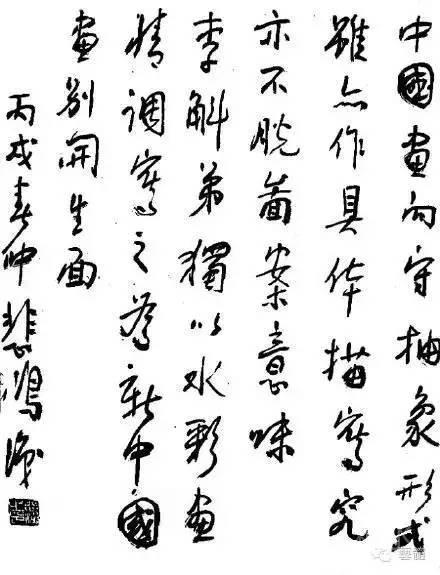 中國畫向守抽象形式
雖亦作具体描寫究
亦不脱圖案意味
李斛弟獨以水彩畫
情調寫之爲新中國
畫别開生面
丙戌春仲悲鴻識